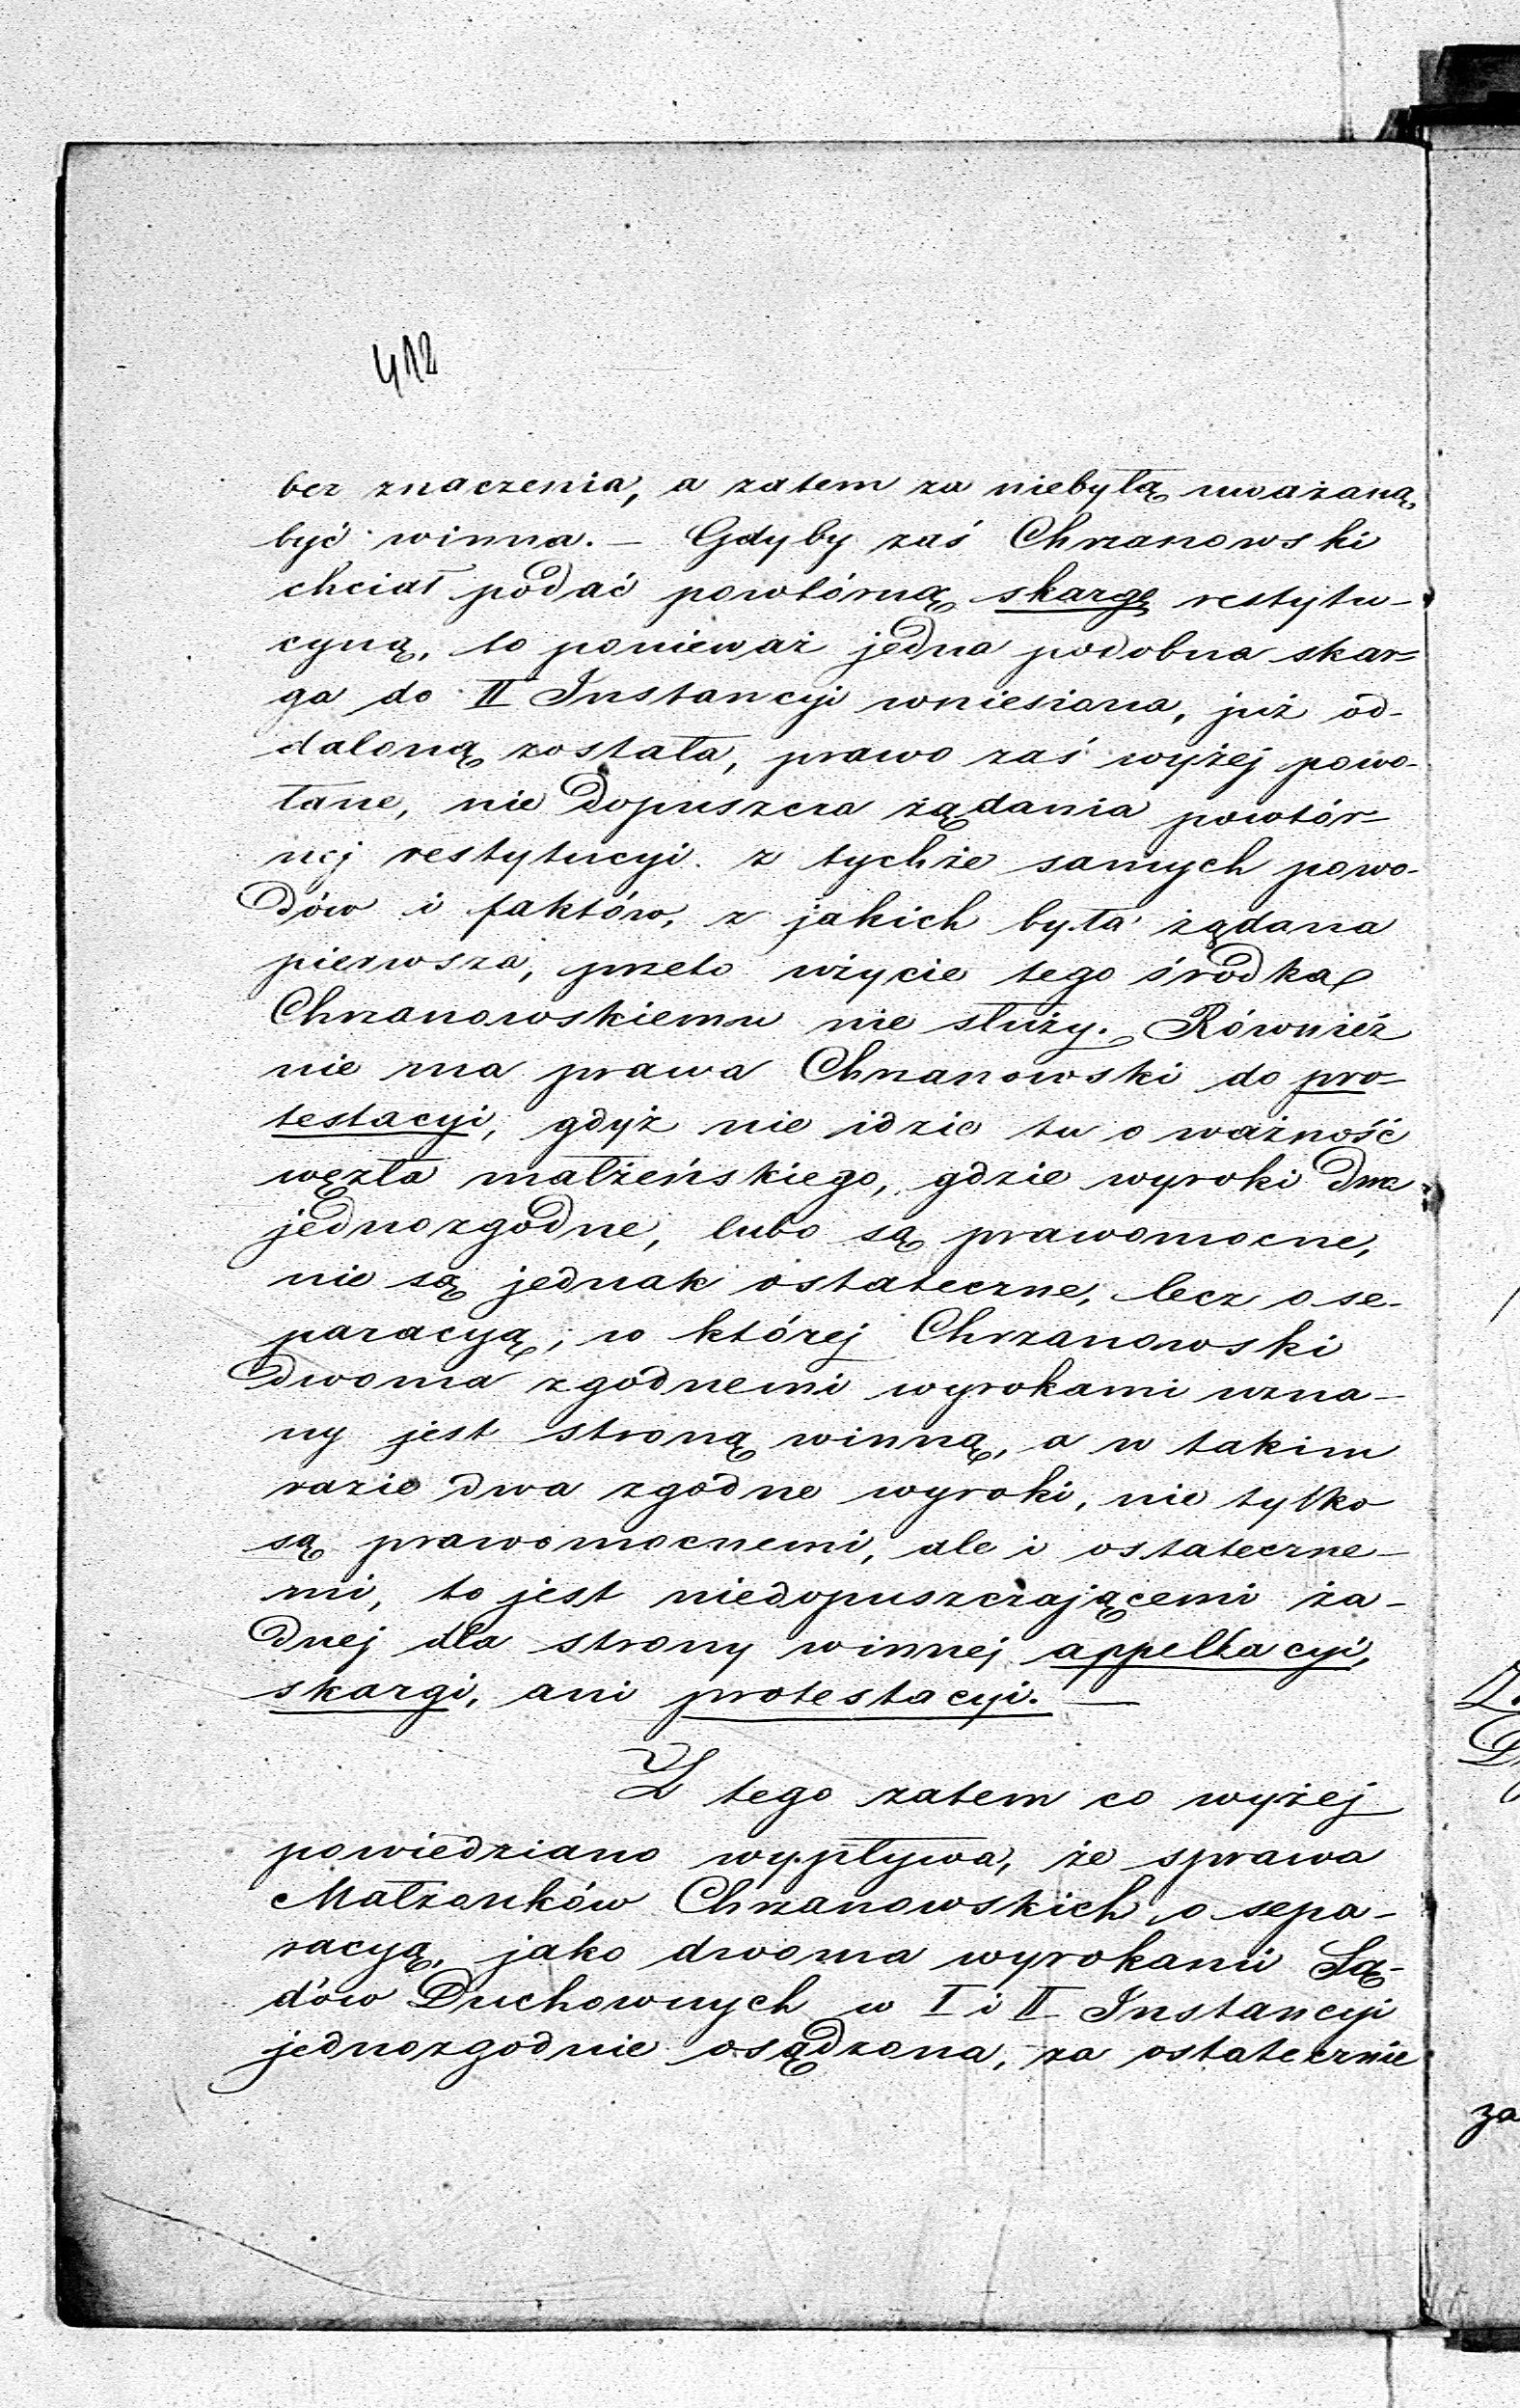 412
bez znaczenia, a zatem za niebyłą uważaną
być winna. — Gdyby zaś Chrzanowski
chciał podać powtórną skargę restytu-
cyną, to ponieważ jedna podobna skar=
ga do II Instancyi wniesiona, już od-
daloną została, prawo zaś wyżej powo-
łane, nie dopuszcza żądania powtór=
nej restytucyi z tychże samych powo-
dów i faktów, z jakich była żądana
pierwsza, przeto użycie tego środka
Chrzanowskiemu nie służy. Również
nie ma prawa Chrzanowski do pro-
testacyi, gdyż nie idzie tu o ważność
węzła małżeńskiego, gdzie wyroki dwa
jednozgodne, lubo są prawomocne,
nie są jednak ostateczne, lecz o se-
paracyą, w której Chrzanowski
dwoma zgodnemi wyrokami uzna-
ny jest stroną winną, a w takim
razie dwa zgodne wyroki, nie tylko
są prawomocnemi, ale i ostateczne-
mi, to jest niedopuszczającemi ża-
dnej dla strony winnej appellacyi,
skargi, ani protestacyi. —
Z tego zatem co wyżej
powiedziano wypływa, że sprawa
Małżonków Chrzanowskich o sepa-
racyą, jako dwoma wyrokami Są-
dów Duchownych w I i II Instancyi
jednozgodnie osądzona, za ostatecznie
za